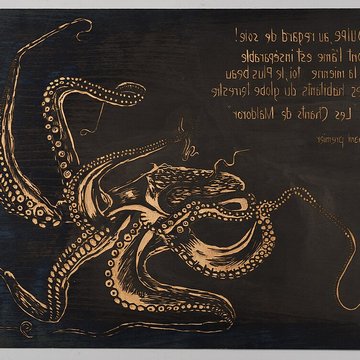 OULPE au regard de soie!
ont l'âme est inséparable
la mienne toi, le Plus beau
es habitants du globe terrestre
Les Chants de Maldoror"
ant premier